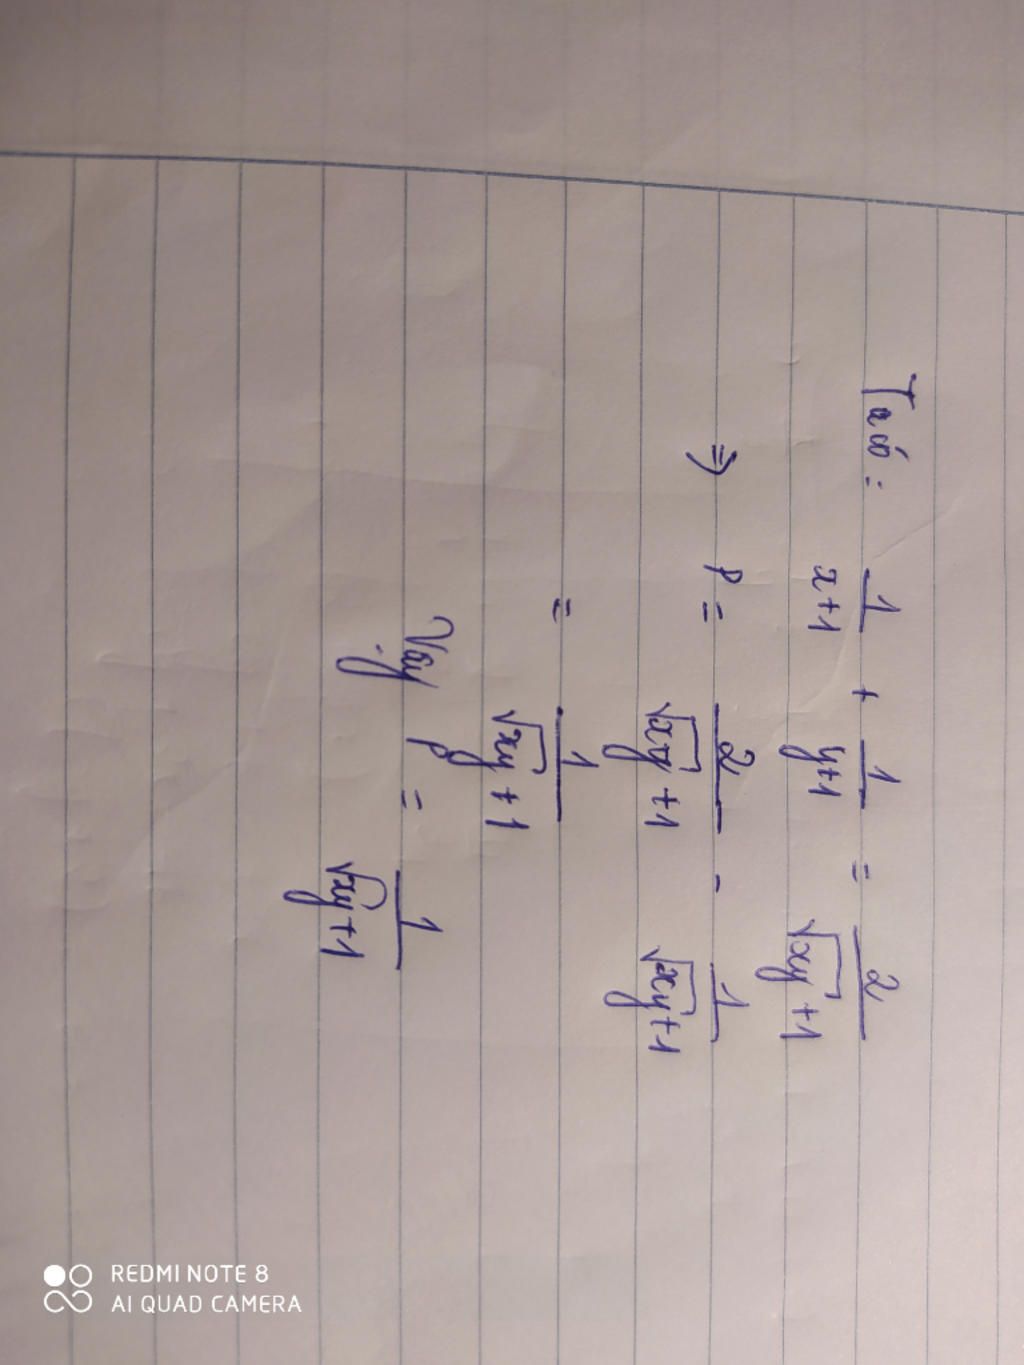 Ta có: 1/(x+1) + 1/(y+1) = 2/(√xy +1)
⇒ P = 2/(√xy +1) - 1/(√xy+1)
= 1/(√xy +1)
Vậy P = 1/(√xy+1)
REDMI NOTE 8
AI QUAD CAMERA